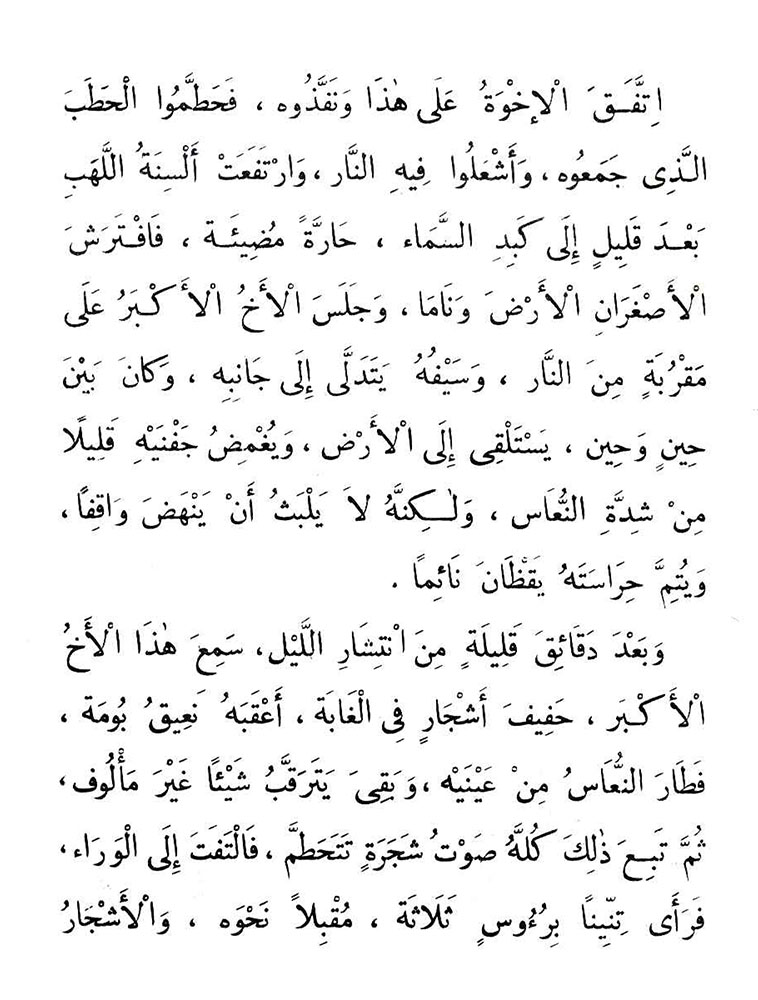 اِتَّفَـقَ الْإخْوَةُ عَلَى هٰذَا وَنَفَّذُوه ، فَحَطَّمُوا الْحَطَبَ
الـَّذِى جَمَعُوه ، وَأَشْعَلُوا فِيهِ النَّار ، وَارْتَفَعَتْ أَلْسِنَةُ اللَّهَبِ
بَعْـدَ قَلِيلٍ إِلَى كَبِدِ السَّمَاء ، حَارَّةً مُضِيئَـة ، فَافْتَرَشَ
الْأَصْغَرَانِ الْأَرْضَ وَنَامَا ، وَجَلَسَ الْأَخُ الْأَكْبَرُ عَلَى
مَقْرُبَةٍ مِنَ النَّار ، وَسَيْفُهُ يَتَدَلَّى إِلَى جَانِبِه ، وَكَانَ بَيْنَ
حِينٍ وَحِين ، يَسْتَلْقِى إِلَى الْأَرْض ، وَيُغْمِضُ جَفْنَيْهِ قَلِيلًا
مِنْ شِدَّةِ النُّعَاس ، وَلٰـكِنَّهُ لاَ يَلْبَثُ أَنْ يَنْهَضَ وَاقِفًا ،
وَيُتِمَّ حِرَاسَتَهُ يَقْظَانَ نَائِمًا .
وَبَعْدَ دَقَائِقَ قَلِيلَةٍ مِنَ انْتِشَارِ اللَّيْل ، سَمِعَ هٰذَا الْأَخُ
الْأَكْـبَر ، حَفِيفَ أَشْجَارٍ فِى الْغَابَة ، أَعْقَبَهُ نَعِيقُ بُومَة ،
فَطَارَ النُّعَاسُ مِنْ عَيْنَيْه ، وَبَقِىَ يَتَرَقَّبُ شَيْئًا غَيْرَ مَأْلُوف ،
ثُمَّ تَبِـعَ ذٰلِكَ كُلَّهُ صَوْتُ شَجَرَةٍ تَتَحَطَّم ، فَالْتَفَتَ إِلَى الْوَرَاء ،
فَرَأَى تِنِّينًا بِرُءُوسٍ ثَلَاثَة ، مُقْبِلاً نَحْوَه ، وَالْأَشْجَارُ